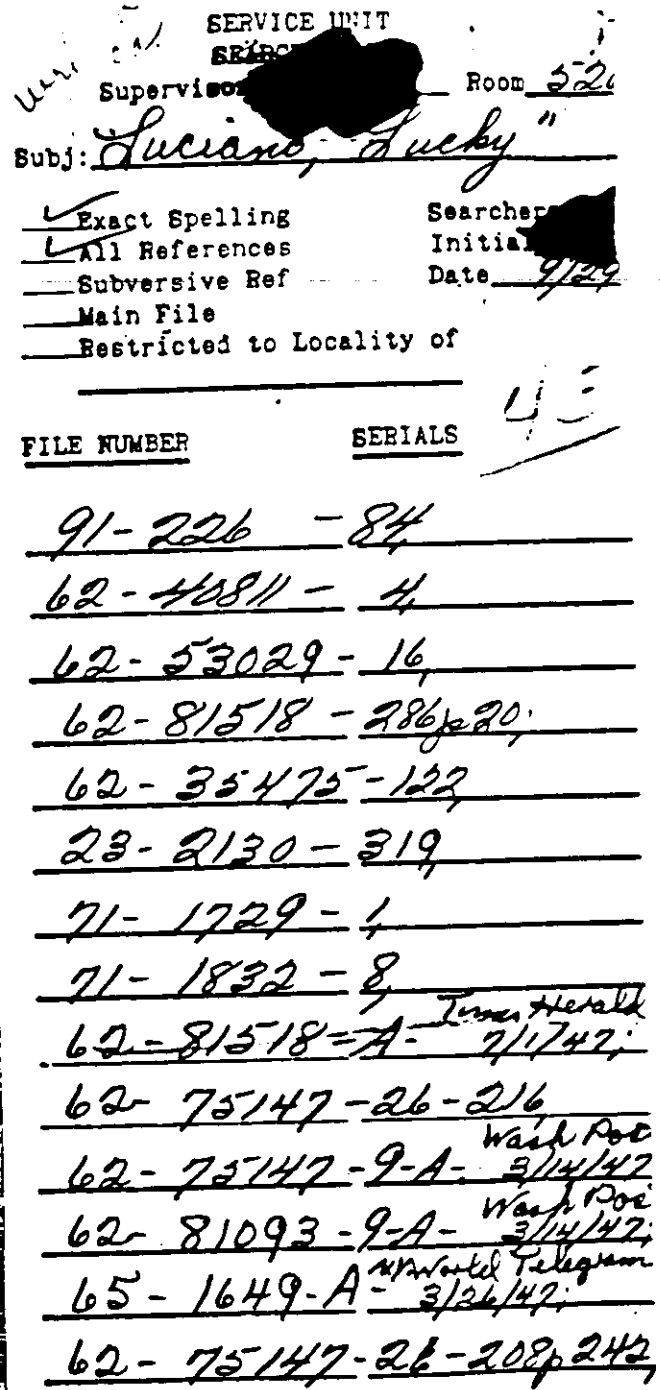 SERVICE UNIT
SEARCH
Supervisor Room 526
Subj: "Luciano, Lucky"
Exact Spelling
All References
Subversive Ref
Main File
Restricted to Locality of
Searchers
Initial
Date 9/29
FILE NUMBER SERIALS
91-226 - 84,
62-40811 - 4,
62-53029 - 16,
62-81518 - 286p20;
62-35475 - 122,
23-2130 - 319,
71-1729 - 1,
71-1832 - 8,
Times Herald
62-81518-A- 7/1/47;
62-75147-26-216,
Wash Pos
62-75147-9-A- 3/14/47
Wash Pos
62-81093-9-A- 3/14/47;
World Telegram
65-1649-A- 3/26/47;
62-75147-26-208p242,